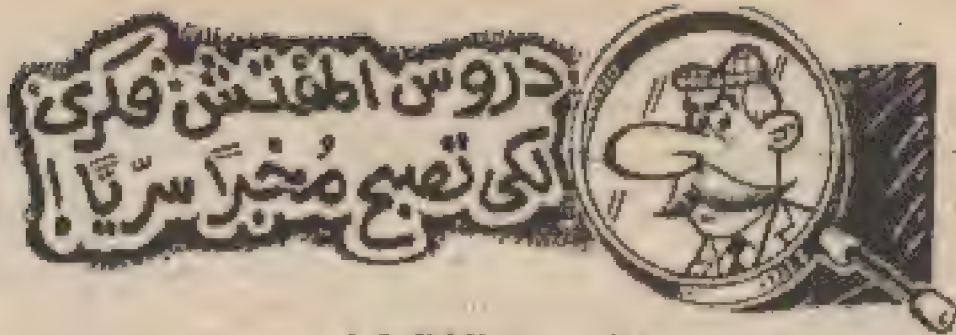 دروس المفتش فكرى
لكى تصبح مُخبرًا سرّيًا !